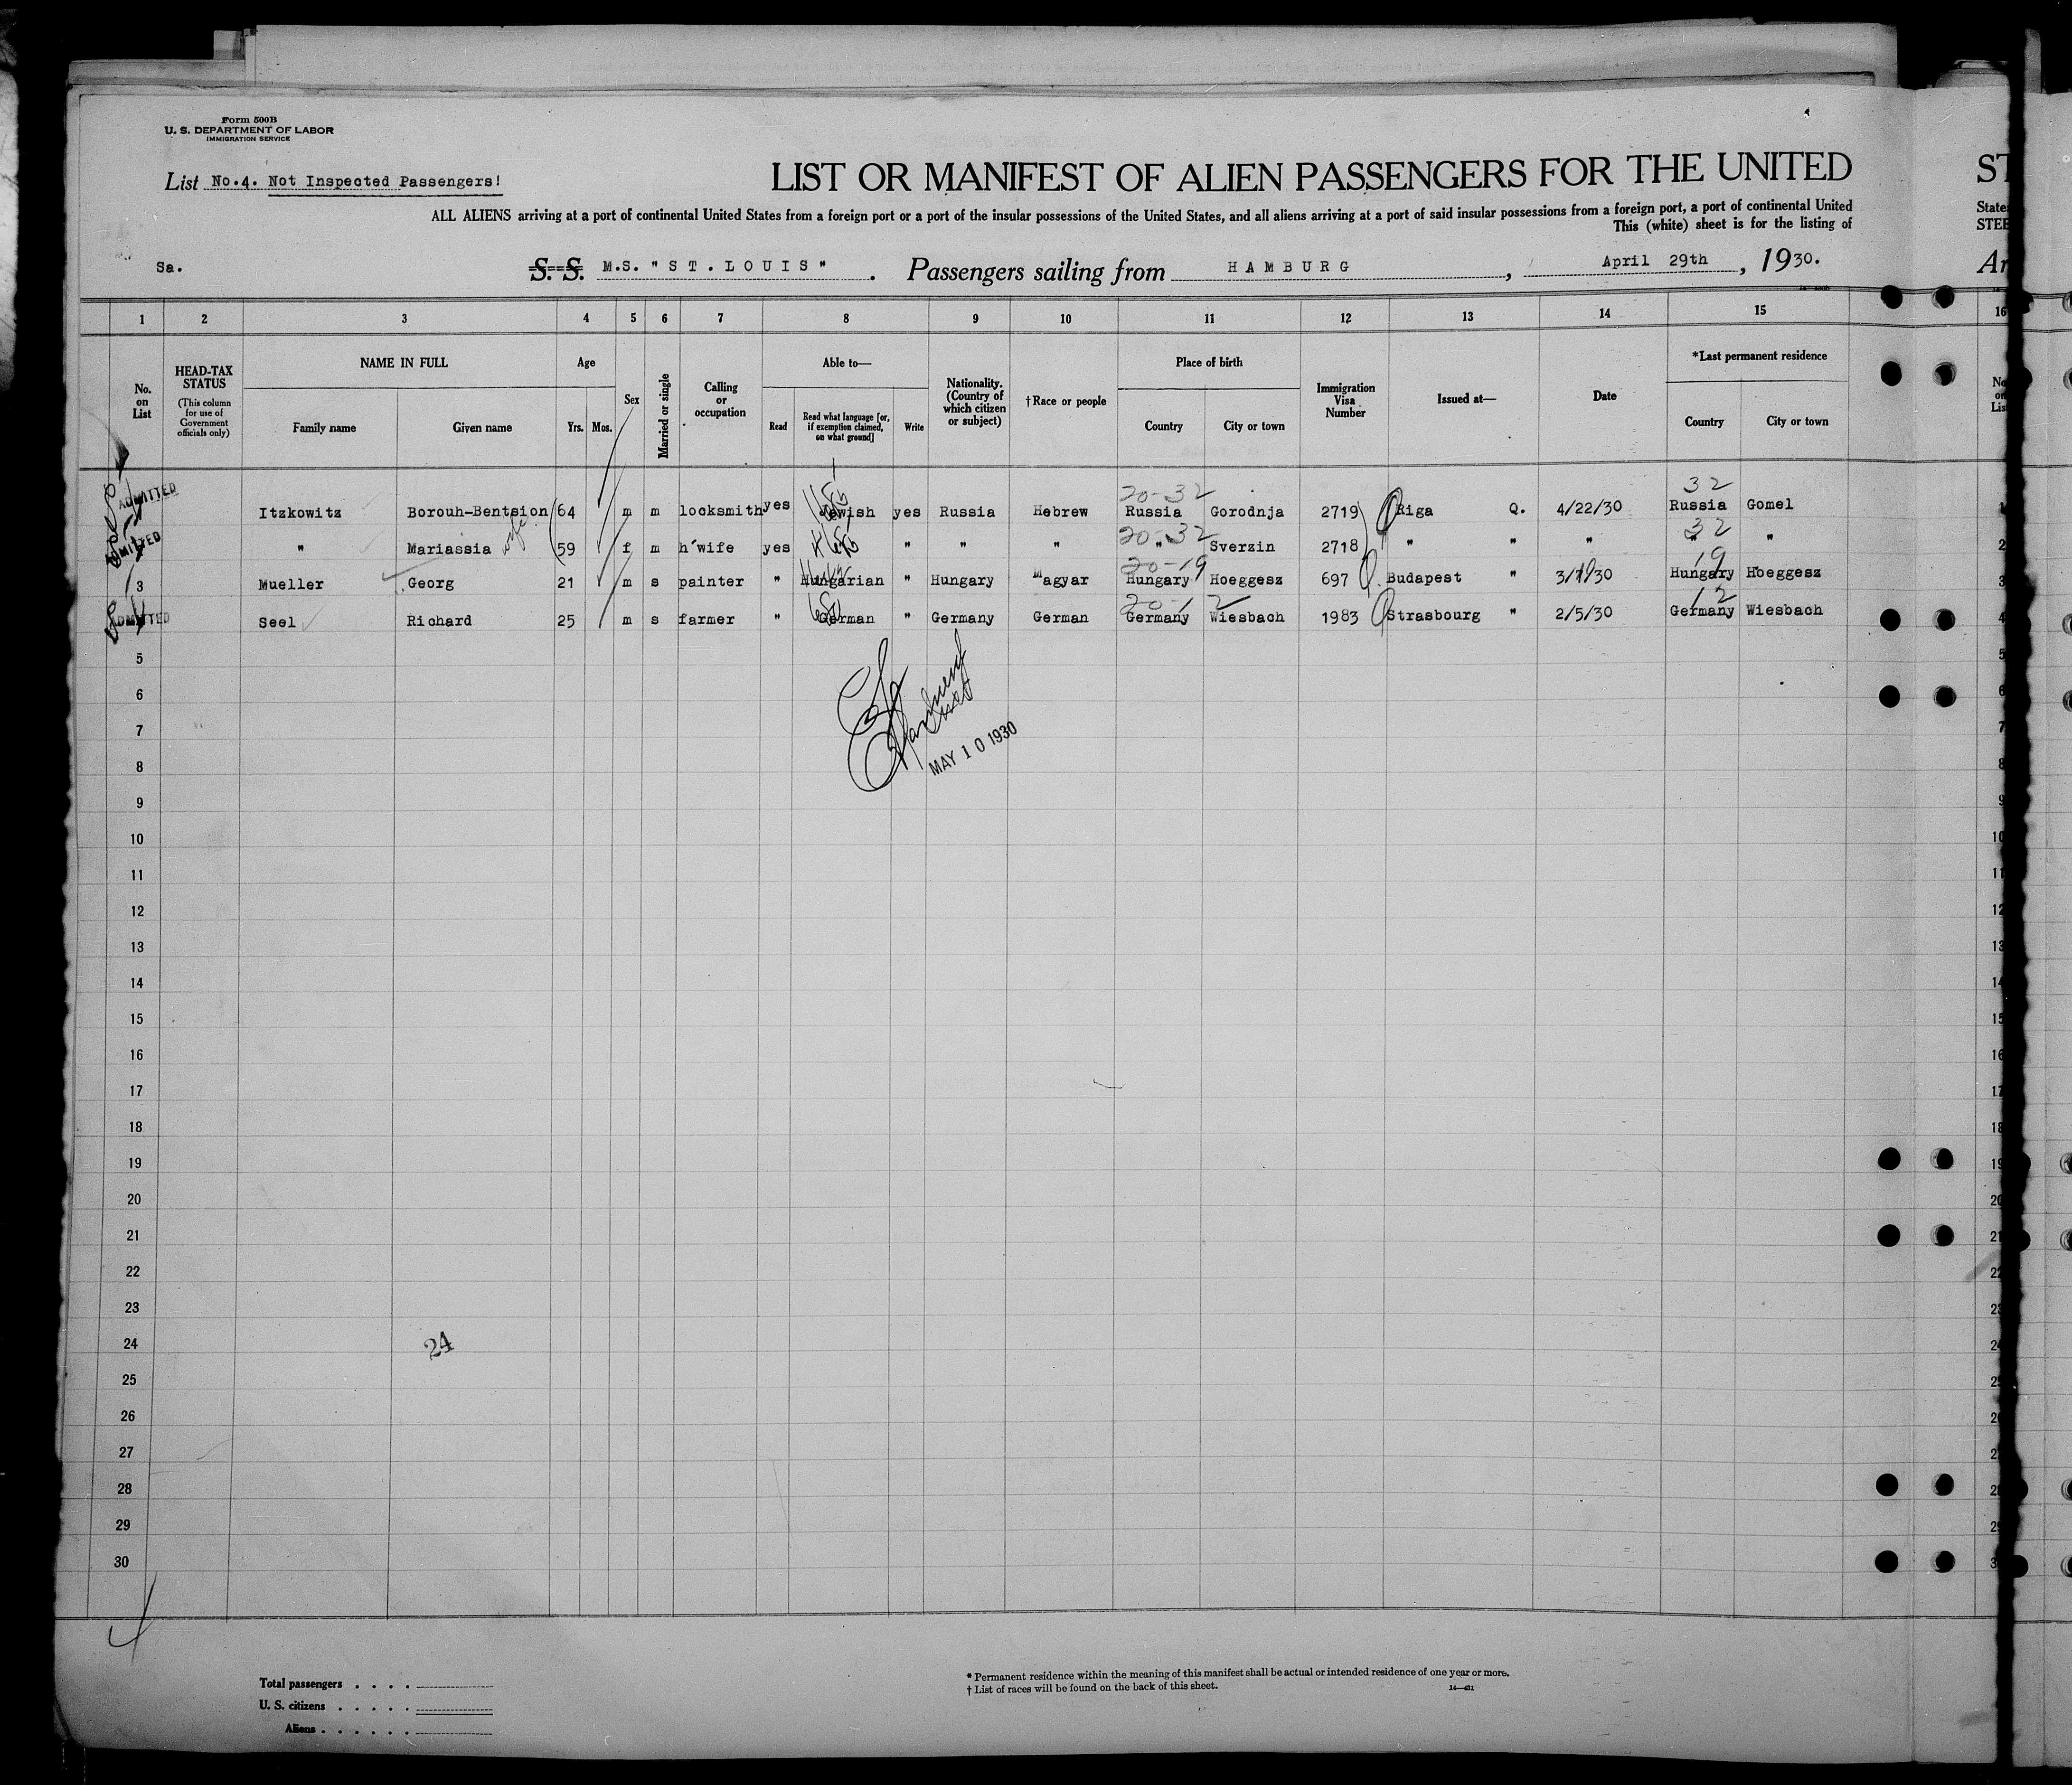 Form 500B
U. S. DEPARTMENT OF LABOR
IMMIGRATION SERVICE
List No.4. Not Inspected Passengers!
LIST OR MANIFEST OF ALIEN PASSENGERS FOR THE UNITED
ST
ALL ALIENS arriving at a port of continental United States from a foreign port or a port of the insular possessions of the United States, and all aliens arriving at a port of said insular possessions from a foreign port, a port of continental United
State
This (white) sheet is for the listing of
STEE
Sa.
S. S. M.S. "ST.LOUIS". Passengers sailing from HAMBURG, April 29th, 1930.
Ar
1 2 3 4 5 6 7 8 9 10 11 12 13 14 15 16
No. on List
HEAD-TAX STATUS
(This column for use of Government officials only)
NAME IN FULL
Family name Given name
Age
Yrs. Mos.
Sex
Married or single
Calling or occupation
Able to—
Read
Read what language [or, if exemption claimed, on what ground]
Write
Nationality. (Country of which citizen or subject)
†Race or people
Place of birth
Country City or town
Immigration Visa Number
Issued at—
Date
*Last permanent residence
Country City or town
ADMITTED
20-32 32
Itzkowitz Borouh-Bentsion 64 m m locksmith yes Jewish yes Russia Hebrew Russia Gorodnja 2719 Riga Q. 4/22/30 Russia Gomel 1
20-32 32
" Mariassia wife 59 f m h'wife yes " " " " Sverzin 2718 " " " " " 2
20-19 19
3 Mueller Georg 21 m s painter " Hungarian " Hungary Magyar Hungary Hoeggesz 697 Budapest " Hungary Hoeggesz 3
20-12 12
ADMITTED Seel Richard 25 m s farmer " German " Germany German Germany Wiesbach 1983 Strasbourg " 2/5/30 Germany Wiesbach 4
5
6
7
MAY 10 1930
8
9
10
11
12
13
14
15
16
17
18
19
20
21
22
23
24 24
25
26
27
28
29
30
Total passengers . . . .
U. S. citizens . . . . .
Aliens . . . . . .
* Permanent residence within the meaning of this manifest shall be actual or intended residence of one year or more.
† List of races will be found on the back of this sheet.